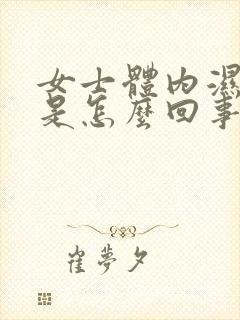 女士體內濕
是怎麼回事
崔夢夕